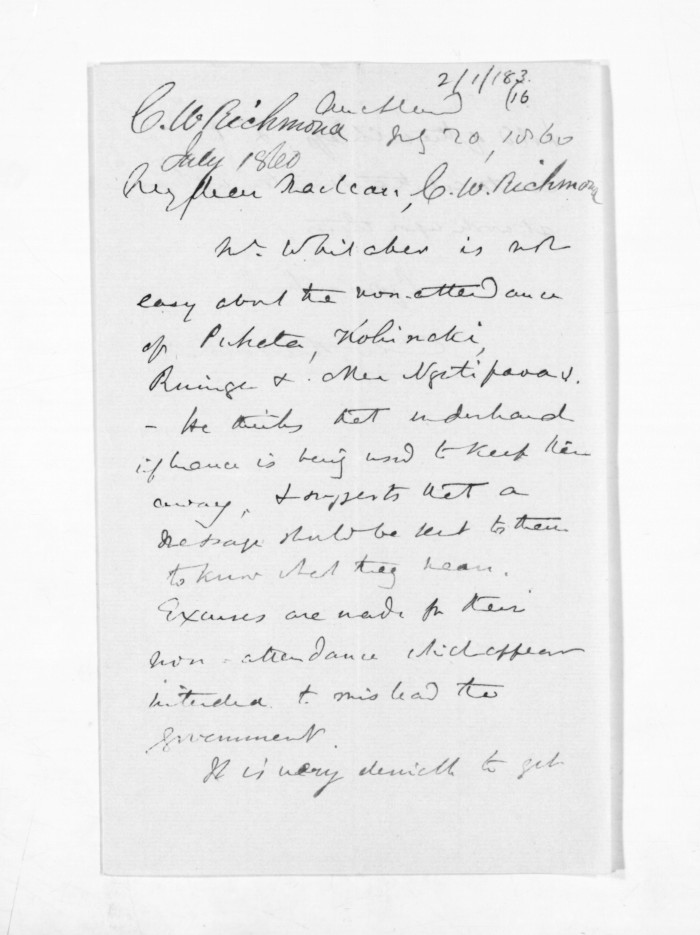 2/1/183.
/16
C. W. Richmond
Auckland
July 20, 1860
July 1860
My dear Maclean, C. W. Richmond
Mr. Whitaker is not
easy about the non-attendance
of
&
- He thinks that underhand
influence is being used to keep him
away, & suggests that a
message should be sent to them
to know what they mean.
Excuses are made for their
non-attendance which appear
intended to mislead the
government.
It is very to get